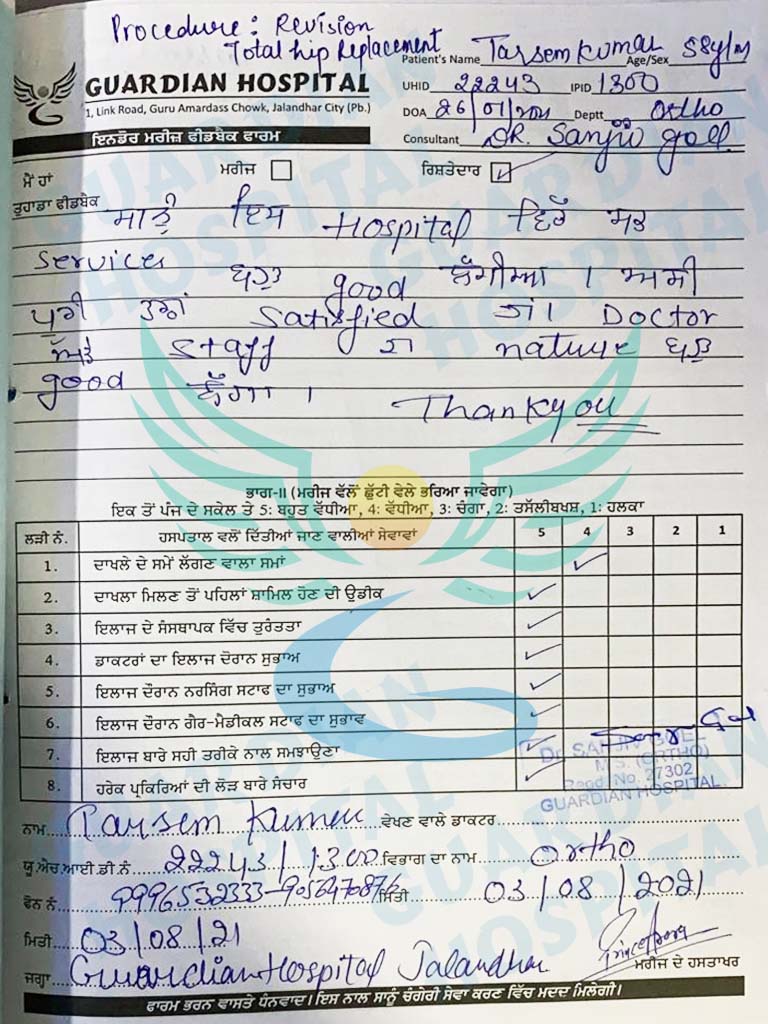 Procedure: Revision
Total hip Replacement
Patient's Name Tarsem Kumar Age/Sex 58y/M
GUARDIAN HOSPITAL
UHID 22243 IPID 1300
1, Link Road, Guru Amardass Chowk, Jalandhar City (Pb.)
DOA 26/07/2021 Deptt Ortho
ਇਨਡੋਰ ਮਰੀਜ਼ ਫੀਡਬੈਕ ਫਾਰਮ
Consultant DR. Sanjiv goel
ਮੈਂ ਹਾਂ ਮਰੀਜ ਰਿਸ਼ਤੇਦਾਰ ✓
ਤੁਹਾਡਾ ਫੀਡਬੈਕ
ਸਾਨੂੰ ਇਸ Hospital ਵਿੱਚ ਸਭ
services ਬਹੁਤ good ਲੱਗੀਆ । ਅਸੀ
ਪੂਰੀ ਤਰਾਂ satisfied ਹਾਂ। Doctor
ਅਤੇ staff ਦਾ nature ਬਹੁਤ
good ਲੱਗਾ ।
Thankyou
ਭਾਗ-II (ਮਰੀਜ ਵੱਲੋਂ ਛੁੱਟੀ ਵੇਲੇ ਭਰਿਆ ਜਾਵੇਗਾ)
ਇਕ ਤੋਂ ਪੰਜ ਦੇ ਸਕੇਲ ਤੇ 5: ਬਹੁਤ ਵੱਧੀਆ, 4: ਵੱਧੀਆ, 3: ਚੰਗਾ, 2: ਤਸੱਲੀਬਖਸ਼, 1: ਹਲਕਾ
ਲੜੀ ਨੰ. ਹਸਪਤਾਲ ਵਲੋਂ ਦਿੱਤੀਆਂ ਜਾਣ ਵਾਲੀਆਂ ਸੇਵਾਵਾਂ 5 4 3 2 1
1. ਦਾਖਲੇ ਦੇ ਸਮੇਂ ਲੱਗਣ ਵਾਲਾ ਸਮਾਂ ✓
2. ਦਾਖਲਾ ਮਿਲਣ ਤੋਂ ਪਹਿਲਾਂ ਸ਼ਾਮਿਲ ਹੋਣ ਦੀ ਉਡੀਕ ✓
3. ਇਲਾਜ ਦੇ ਸੰਸਥਾਪਕ ਵਿੱਚ ਤੁਰੰਤਤਾ ✓
4. ਡਾਕਟਰਾਂ ਦਾ ਇਲਾਜ ਦੋਰਾਨ ਸੁਭਾਅ ✓
5. ਇਲਾਜ ਦੌਰਾਨ ਨਰਸਿੰਗ ਸਟਾਫ ਦਾ ਸੁਭਾਅ ✓
6. ਇਲਾਜ ਦੌਰਾਨ ਗੈਰ-ਮੈਡੀਕਲ ਸਟਾਫ ਦਾ ਸੁਭਾਵ ✓
7. ਇਲਾਜ ਬਾਰੇ ਸਹੀ ਤਰੀਕੇ ਨਾਲ ਸਮਝਾਉਣਾ ✓
8. ਹਰੇਕ ਪ੍ਰਕਿਰਿਆਂ ਦੀ ਲੋੜ ਬਾਰੇ ਸੰਚਾਰ ✓
Dr. SANJIV GOEL
M.S. (ORTHO)
Regd. No. 27302
GUARDIAN HOSPITAL
ਨਾਮ Tarsem Kumar ਵੇਖਣ ਵਾਲੇ ਡਾਕਟਰ
ਯੂ.ਐਚ.ਆਈ.ਡੀ.ਨੰ 22243/1300 ਵਿਭਾਗ ਦਾ ਨਾਮ Ortho
ਫੋਨ ਨੰ. ਮਿਤੀ 03/08/2021
ਮਿਤੀ 03/08/21
ਜਗ੍ਹਾ Guardian Hospital Jalandhar ਮਰੀਜ ਦੇ ਹਸਤਾਖਰ
ਫਾਰਮ ਭਰਨ ਵਾਸਤੇ ਧੰਨਵਾਦ। ਇਸ ਨਾਲ ਸਾਨੂੰ ਚੰਗੇਰੀ ਸੇਵਾ ਕਰਣ ਵਿੱਚ ਮਦਦ ਮਿਲੇਗੀ।